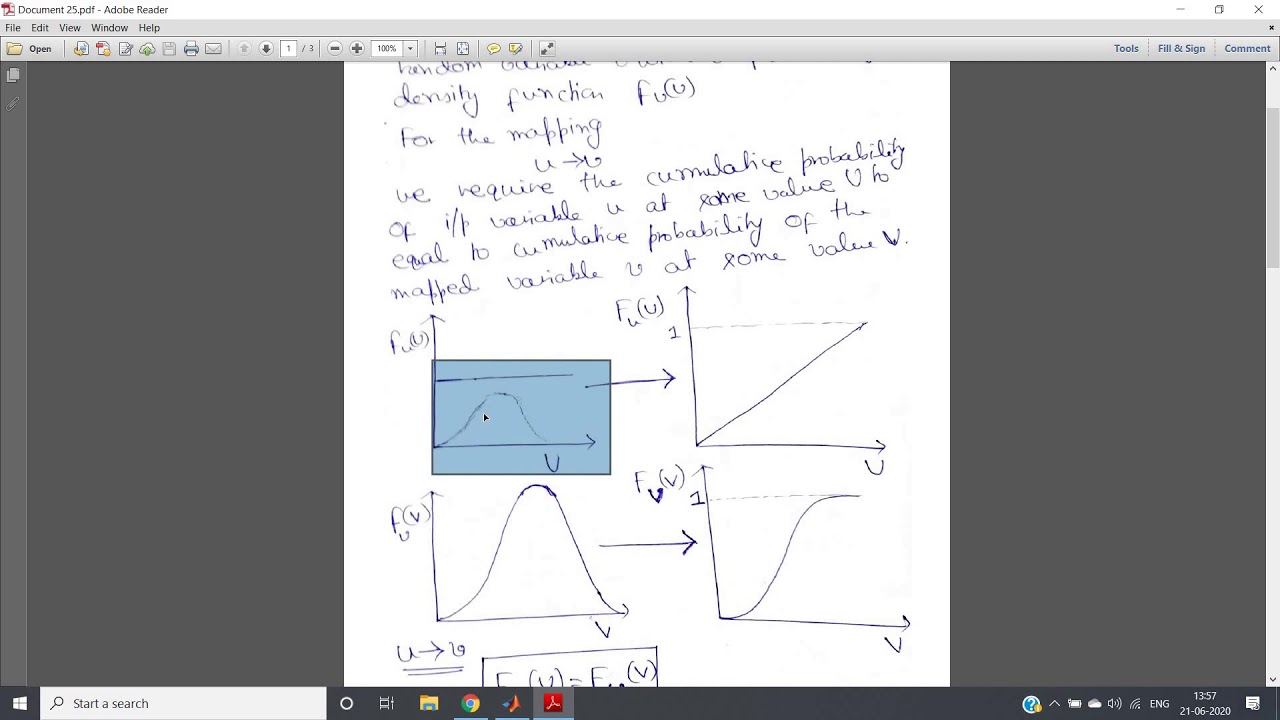 Document 25.pdf - Adobe Reader
File Edit View Window Help
Open 1 / 3 100% Tools Fill & Sign Comment
density function fv(v)
For the mapping
u → v
we require the cumulative probability
of i/p variable u at some value U to
equal to cumulative probability of the
mapped variable v at some value V.
fu(U)
Fu(U)
1
U
U
fv(V)
Fv(V)
1
V
V
u → v
F (U) = F (V)
Start a search
ENG
13:57
21-06-2020